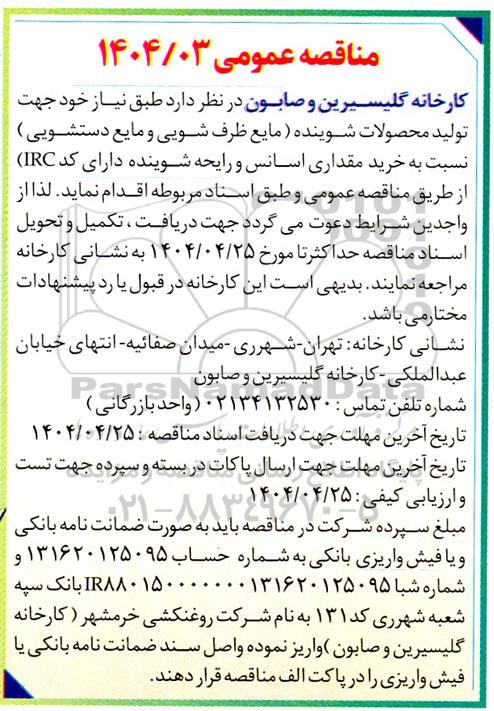 مناقصه عمومی ۱۴۰۴/۰۳
کارخانه گلیسیرین و صابون در نظر دارد طبق نیاز خود جهت
تولید محصولات شوینده ( مایع ظرف شویی و مایع دستشویی )
نسبت به خرید مقداری اسانس و رایحه شوینده دارای کد IRC)
از طریق مناقصه عمومی و طبق اسناد مربوطه اقدام نماید. لذا از
واجدین شرایط دعوت می گردد جهت دریافت ، تکمیل و تحویل
اسناد مناقصه حداکثر تا مورخ ۱۴۰۴/۰۴/۲۵ به نشانی کارخانه
مراجعه نمایند. بدیهی است این کارخانه در قبول یا رد پیشنهادات
مختار می باشد.
نشانی کارخانه: تهران-شهرری -میدان صفائیه- انتهای خیابان
عبدالملکی -کارخانه گلیسیرین و صابون
شماره تلفن تماس : ۰۲۱۳۴۱۳۲۵۳۰ ( واحد بازرگانی )
تاریخ آخرین مهلت جهت دریافت اسناد مناقصه : ۱۴۰۴/۰۴/۲۵
تاریخ آخرین مهلت جهت ارسال پاکات در بسته و سپرده جهت تست
و ارزیابی کیفی : ۱۴۰۴/۰۴/۲۵
مبلغ سپرده شرکت در مناقصه باید به صورت ضمانت نامه بانکی
و یا فیش واریزی بانکی به شماره حساب ۱۳۱۶۲۰۱۲۵۰۹۵ و
شماره شبا IR۸۸۰۱۵۰۰۰۰۰۰۰۱۳۱۶۲۰۱۲۵۰۹۵ بانک سپه
شعبه شهرری کد ۱۳۱ به نام شرکت روغنکشی خرمشهر ( کارخانه
گلیسیرین و صابون )واریز نموده واصل سند ضمانت نامه بانکی یا
فیش واریزی را در پاکت الف مناقصه قرار دهند.
ParsNamadData
پایگاه اطلاع رسانی مناقصه و مزایده
۰۲۱-۸۸۳۴۹۶۷۰-۵